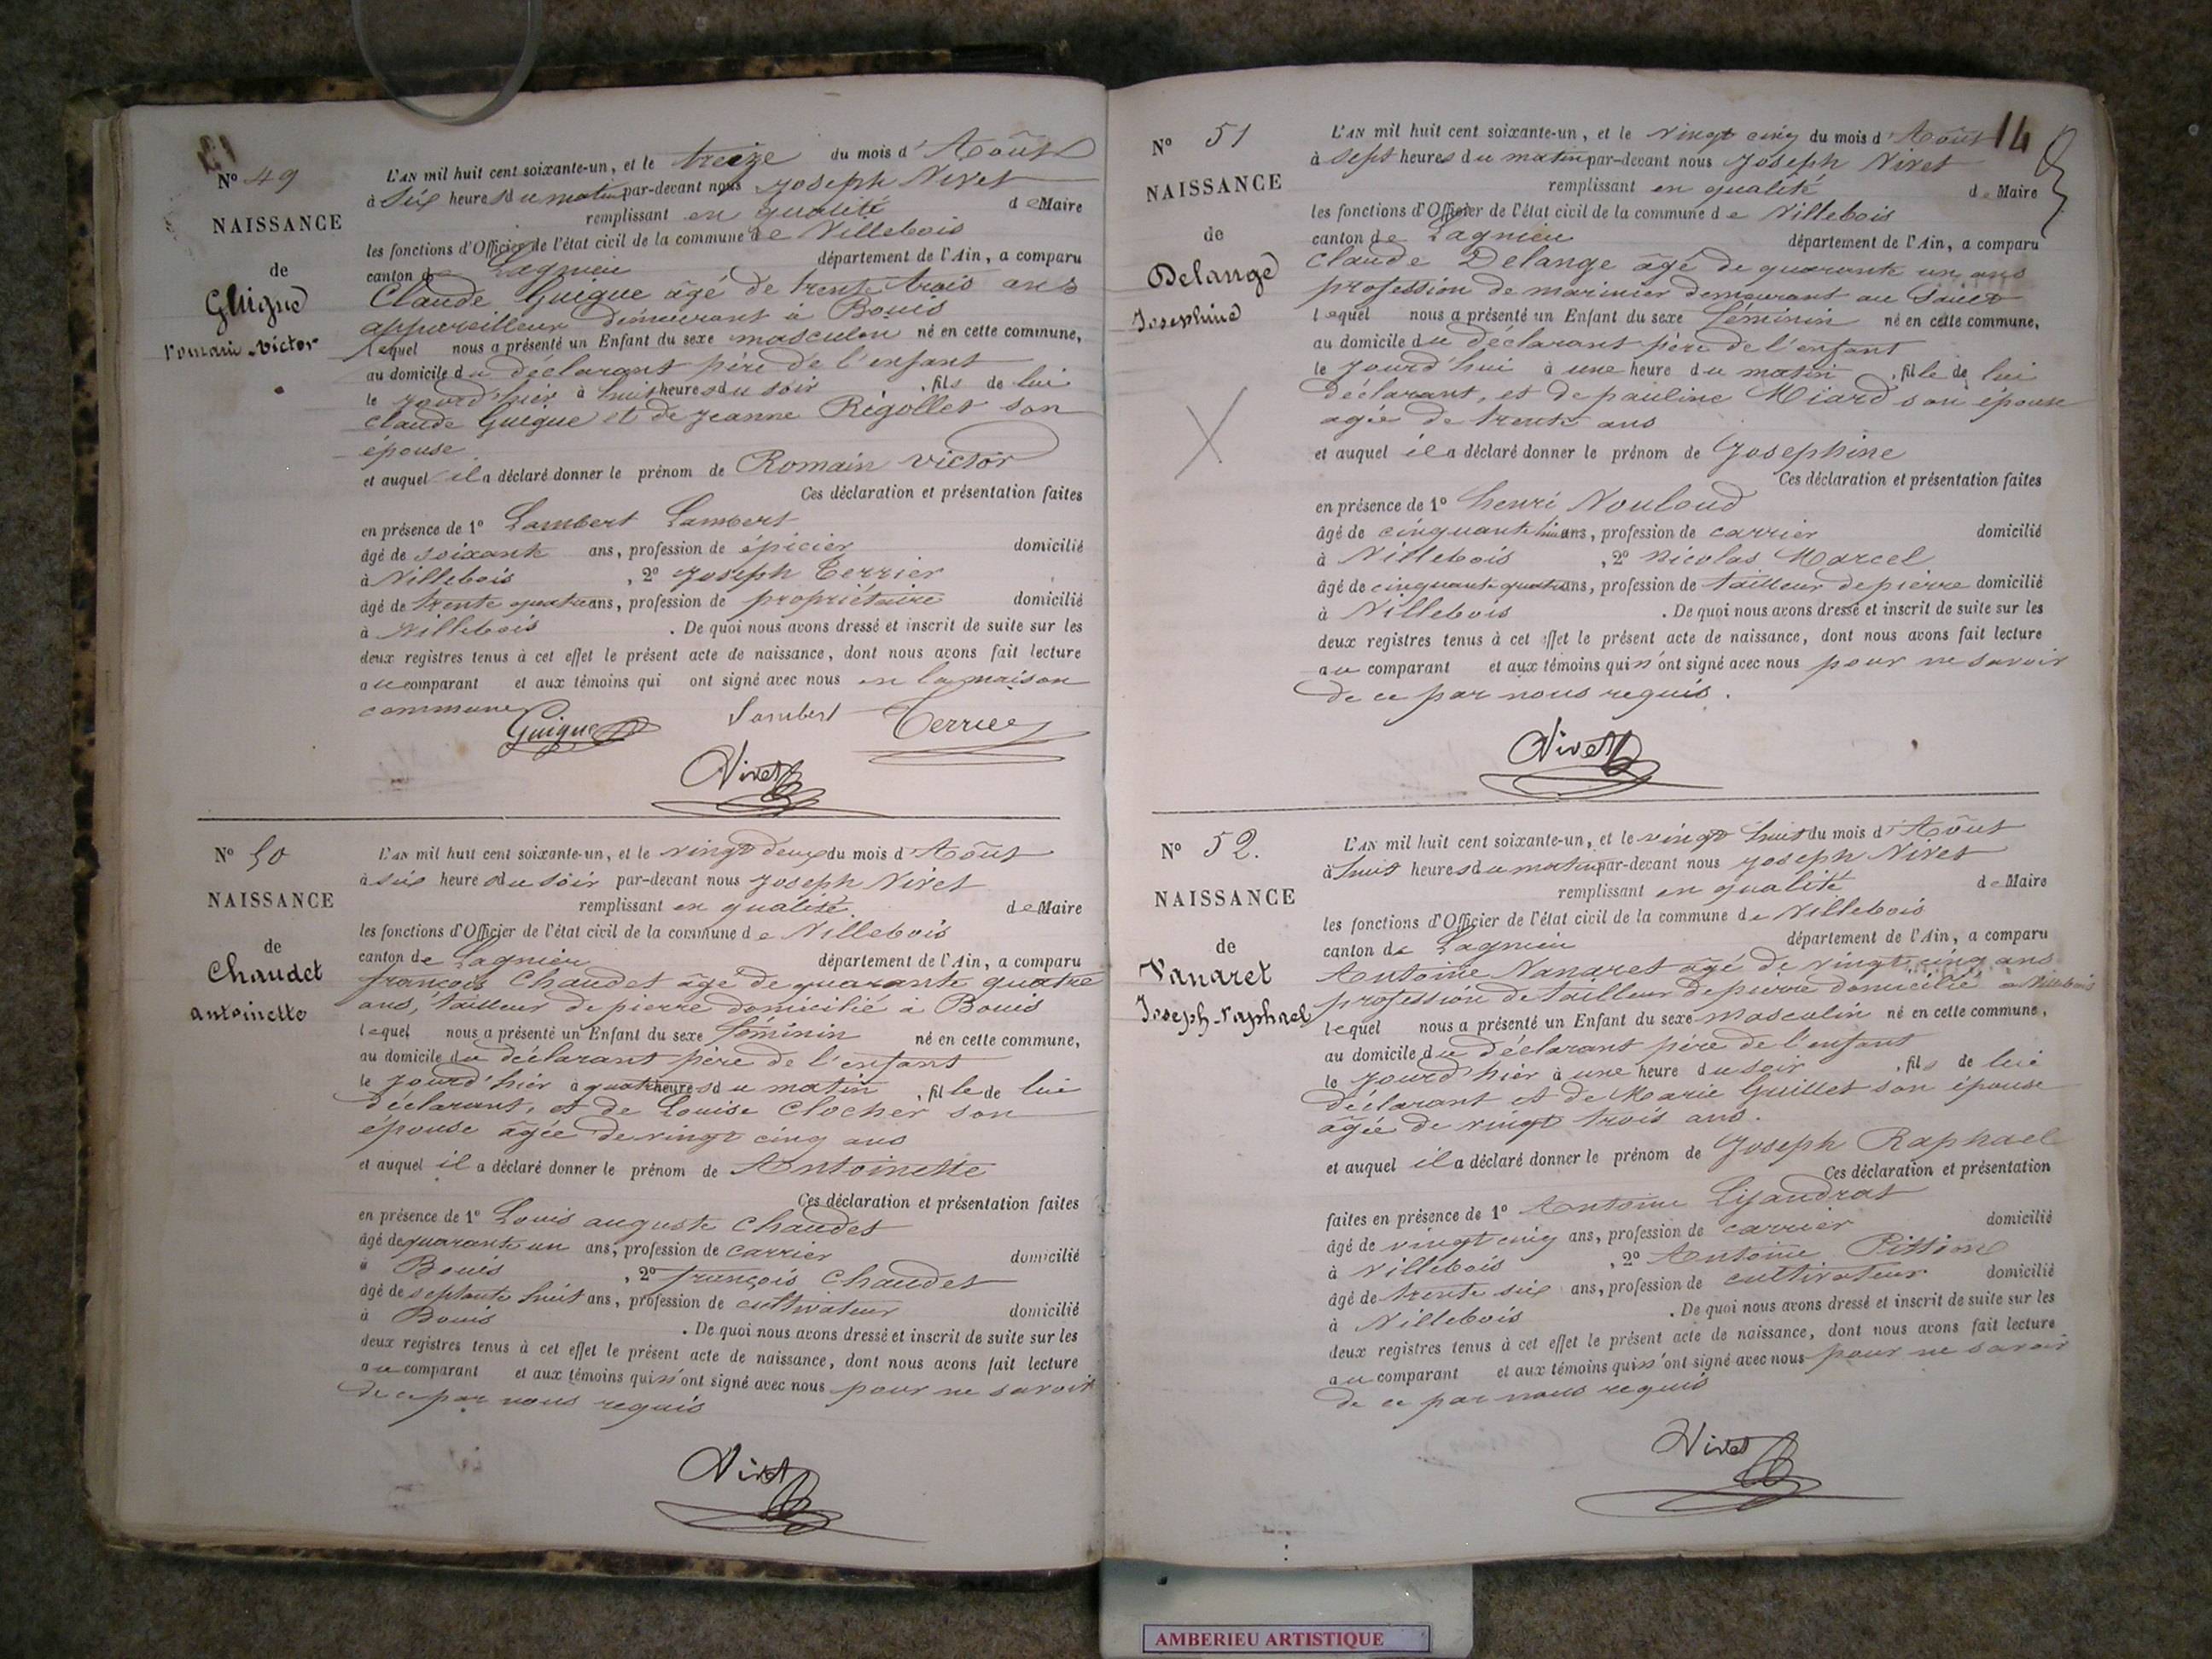 Nº 49
NAISSANCE
de
Guigue
romain victor
L'AN mil huit cent soixante-un, et le treize du mois d'Août
à six heures du matin par-devant nous Joseph Nivet
remplissant en qualité de Maire
les fonctions d'Officier de l'état civil de la commune de Villebois
canton de Lagnieu département de l'Ain, a comparu
Claude Guigue âgé de trente trois ans
appareilleur demeurant à Bouis
lequel nous a présenté un Enfant du sexe masculin né en cette commune,
au domicile du déclarant père de l'enfant
le jourd'hier à huit heures du soir, fils de lui
claude Guigue et de Jeanne Rigollet son
épouse
et auquel il a déclaré donner le prénom de Romain victor
Ces déclaration et présentation faites
en présence de 1º Lambert Lambert
âgé de soixante ans, profession de épicier domicilié
à Villebois, 2º Joseph Terrier
âgé de trente quatre ans, profession de propriétaire domicilié
à Villebois. De quoi nous avons dressé et inscrit de suite sur les
deux registres tenus à cet effet le présent acte de naissance, dont nous avons fait lecture
au comparant et aux témoins qui ont signé avec nous en la maison
commune
Guigue Lambert Terrier
Nivet
Nº 50
NAISSANCE
de
Chaudet
antoinette
L'AN mil huit cent soixante-un, et le vingt deux du mois d'Août
à six heures du soir par-devant nous Joseph Nivet
remplissant en qualité de Maire
les fonctions d'Officier de l'état civil de la commune de Villebois
canton de Lagnieu département de l'Ain, a comparu
françois Chaudet âgé de quarante quatre
ans, tailleur de pierre domicilié à Bouis
lequel nous a présenté un Enfant du sexe féminin né en cette commune,
au domicile du déclarant père de l'enfant
le jourd'hier à quatre heures du matin, fille de lui
déclarant, et de Louise Clocher son
épouse âgée de vingt cinq ans
et auquel il a déclaré donner le prénom de Antoinette
Ces déclaration et présentation faites
en présence de 1º Louis auguste Chaudet
âgé de quarante un ans, profession de carrier domicilié
à Bouis, 2º françois Chaudet
âgé de septante huit ans, profession de cultivateur domicilié
à Bouis. De quoi nous avons dressé et inscrit de suite sur les
deux registres tenus à cet effet le présent acte de naissance, dont nous avons fait lecture
au comparant et aux témoins qui n'ont signé avec nous pour ne savoir
de ce par nous requis
Nivet
14
Nº 51
NAISSANCE
de
Delange
Josephine
L'AN mil huit cent soixante-un, et le vingt cinq du mois d'Août
à sept heures du matin par-devant nous Joseph Nivet
remplissant en qualité de Maire
les fonctions d'Officier de l'état civil de la commune de Villebois
canton de Lagnieu département de l'Ain, a comparu
Claude Delange âgé de quarante un ans
profession de marinier demeurant au Sault
lequel nous a présenté un Enfant du sexe féminin né en cette commune,
au domicile du déclarant père de l'enfant
le jourd'hui à une heure du matin, fille de lui
déclarant, et de pauline Miard son épouse
agée de trente ans
et auquel il a déclaré donner le prénom de Josephine
Ces déclaration et présentation faites
en présence de 1º henri Nouloud
âgé de cinquante huit ans, profession de carrier domicilié
à Villebois, 2º Nicolas Marcel
âgé de cinquante quatre ans, profession de tailleur de pierre domicilié
à Villebois. De quoi nous avons dressé et inscrit de suite sur les
deux registres tenus à cet effet le présent acte de naissance, dont nous avons fait lecture
au comparant et aux témoins qui n'ont signé avec nous pour ne savoir
de ce par nous requis.
Nivet
Nº 52.
NAISSANCE
de
Vanaret
Joseph raphael
L'AN mil huit cent soixante-un, et le vingt huit du mois d'Août
à huit heures du matin par-devant nous Joseph Nivet
remplissant en qualité de Maire
les fonctions d'Officier de l'état civil de la commune de Villebois
canton de Lagnieu département de l'Ain, a comparu
Antoine Vanaret âgé de vingt cinq ans
profession de tailleur de pierre domicilié à Villebois
lequel nous a présenté un Enfant du sexe masculin né en cette commune,
au domicile du déclarant père de l'enfant
le jourd'hier à une heure du soir, fils de lui
déclarant et de Marie Guillet son épouse
âgée de vingt trois ans.
et auquel il a déclaré donner le prénom de Joseph Raphael
Ces déclaration et présentation
faites en présence de 1º Antoine Lyaudrat
âgé de vingt cinq ans, profession de carrier domicilié
à Villebois, 2º Antoine Pittion
âgé de trente six ans, profession de cultivateur domicilié
à Villebois. De quoi nous avons dressé et inscrit de suite sur les
deux registres tenus à cet effet le présent acte de naissance, dont nous avons fait lecture
au comparant et aux témoins qui n'ont signé avec nous pour ne savoir
de ce par nous requis
Nivet
AMBERIEU ARTISTIQUE